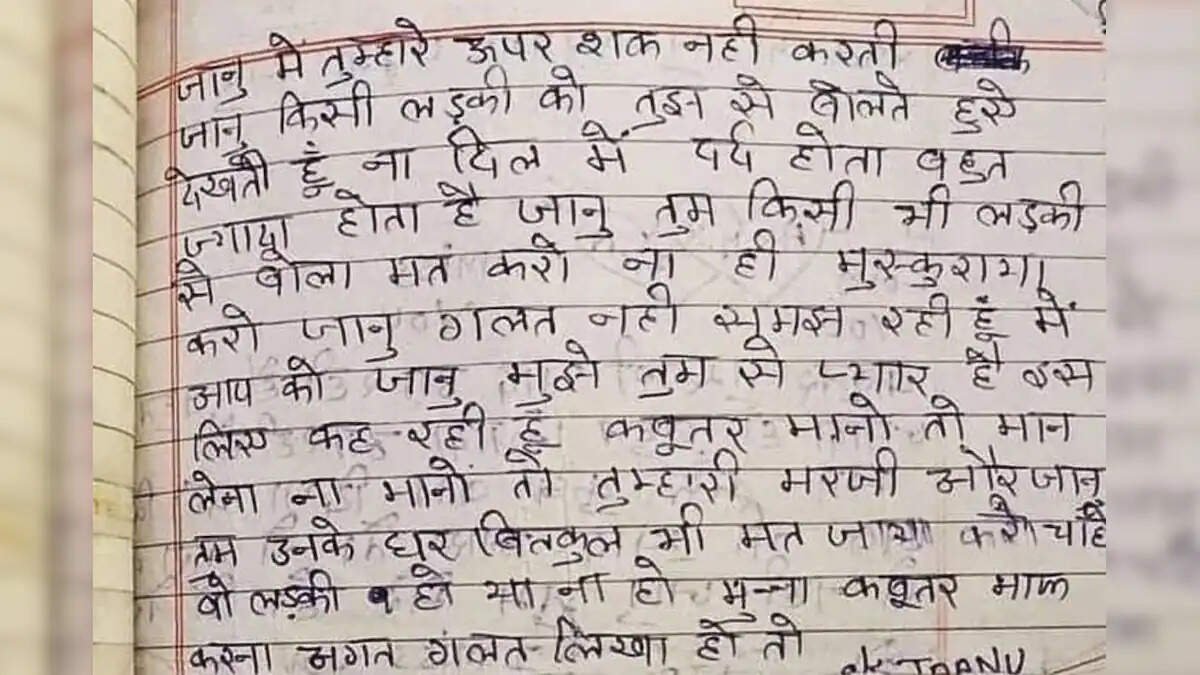 जानु मे तुम्हारे ऊपर शक नही करती
जानु किसी लड़की को तुझ से बोलते हुऐ
देखती हूं ना दिल में दर्द होता बहुत
ज्यादा होता है जानु तुम किसी भी लड़की
से बोला मत करो ना ही मुस्कुराया
करो जानु गलत नही समझ रही हूं में
आप को जानु मुझे तुम से प्यार है इस
लिए कह रही हूं कबूतर मानो तो मान
लेना ना मानो तो तुम्हारी मरजी और जानु
तुम उनके घर बितकुल भी मत जाया करो चाहे
वो लड़की हो या ना हो मुन्ना कबूतर माफ
करना अगत गलत लिखा हो तो
JAANU